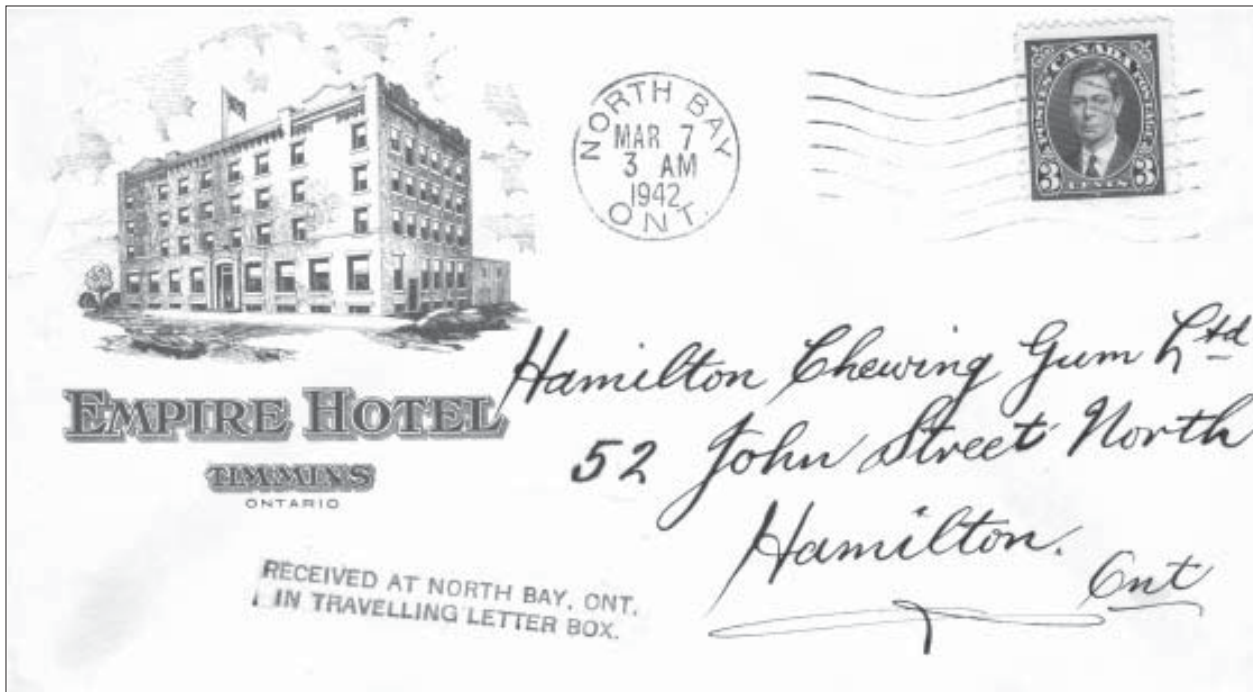 NORTH BAY
MAR 7
3 AM
1942
ONT.
POSTES CANADA POSTAGE
3 CENTS 3
EMPIRE HOTEL
TIMMINS
ONTARIO
Hamilton Chewing Gum Ltd
52 John Street North
Hamilton.
Ont
RECEIVED AT NORTH BAY, ONT.
IN TRAVELLING LETTER BOX.